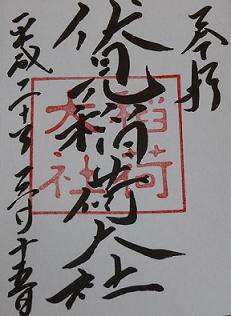 奉拝
伏見稲荷大社
稲荷
大社
平成二十年三月十五日